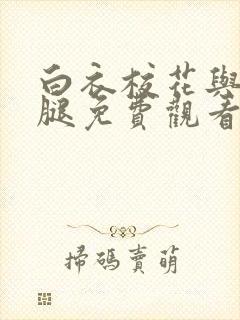 白衣校花與
腿免費觀看
掃碼賣萌